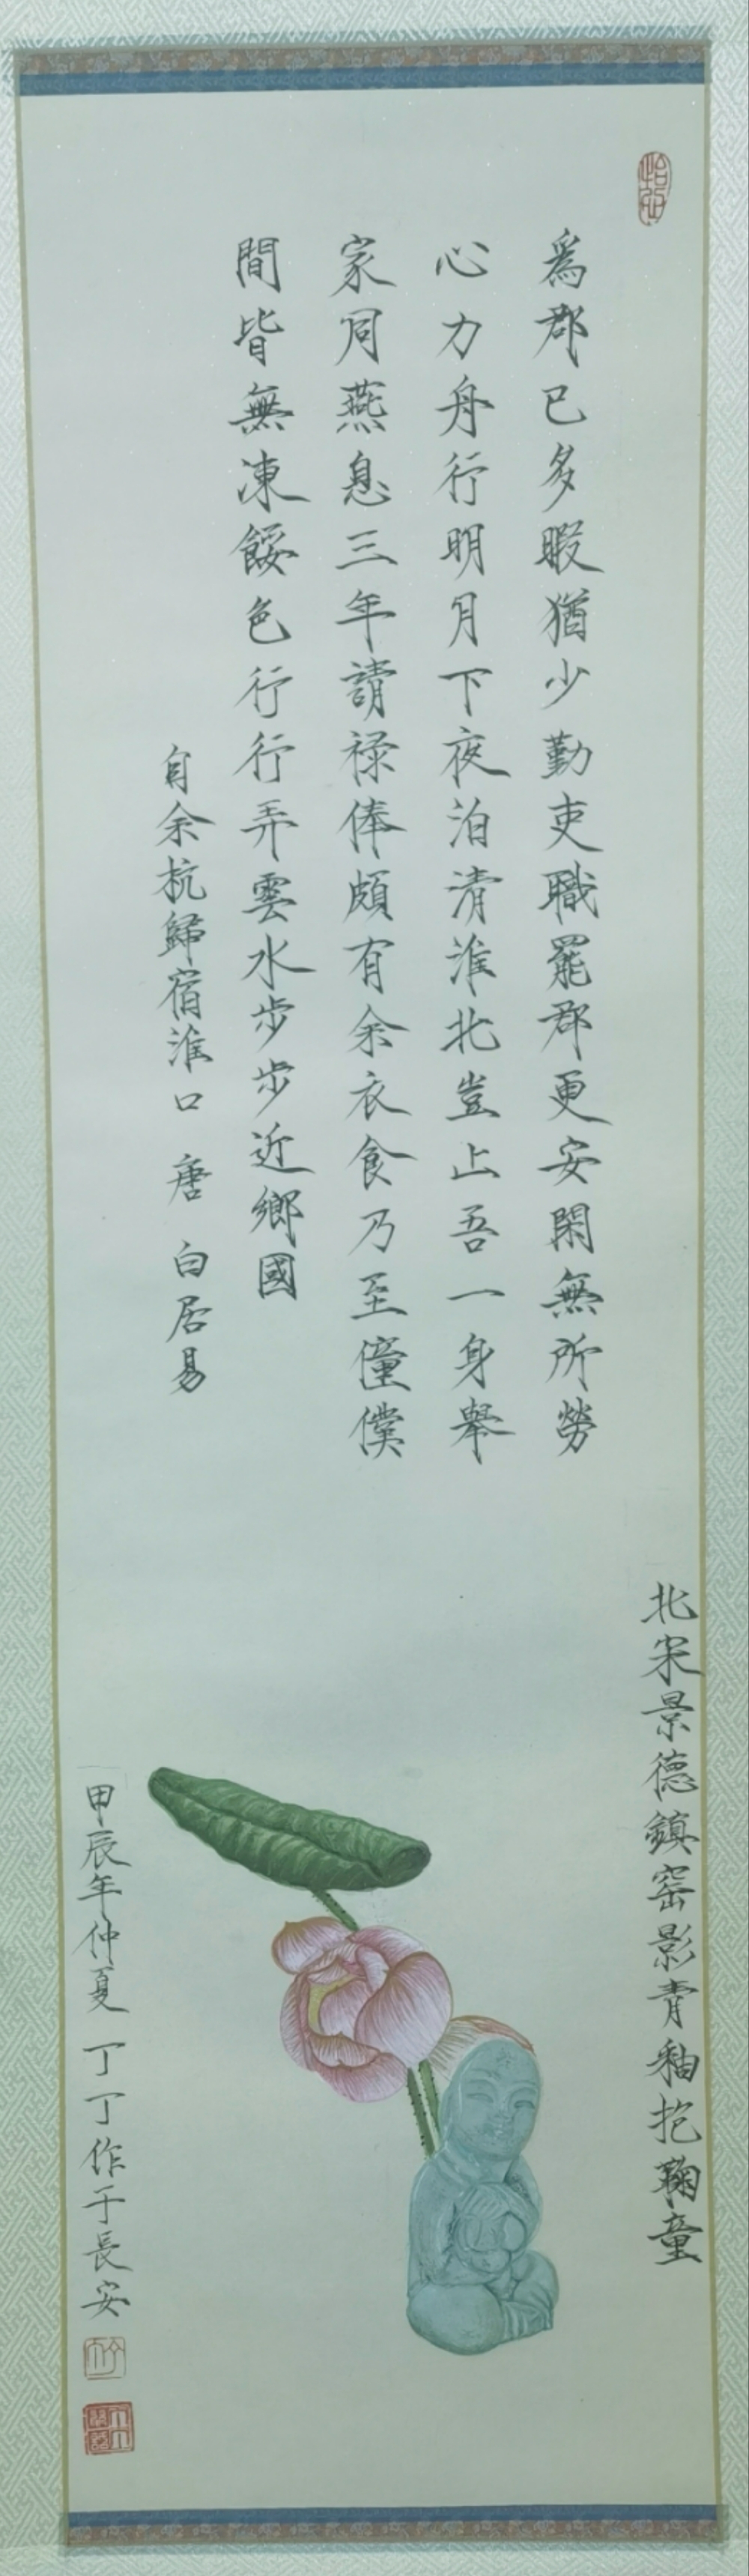 爲郡已多暇猶少勤吏職罷郡更安閑無所勞
心力舟行明月下夜泊清淮北豈止吾一身舉
家同燕息三年請禄俸頗有余衣食乃至僮僕
間皆無凍餒色行行弄雲水步步近鄉國
自余杭歸宿淮口 唐 白居易
北宋景德鎮窑影青釉抱鞠童
甲辰年仲夏 丁丁作于長安